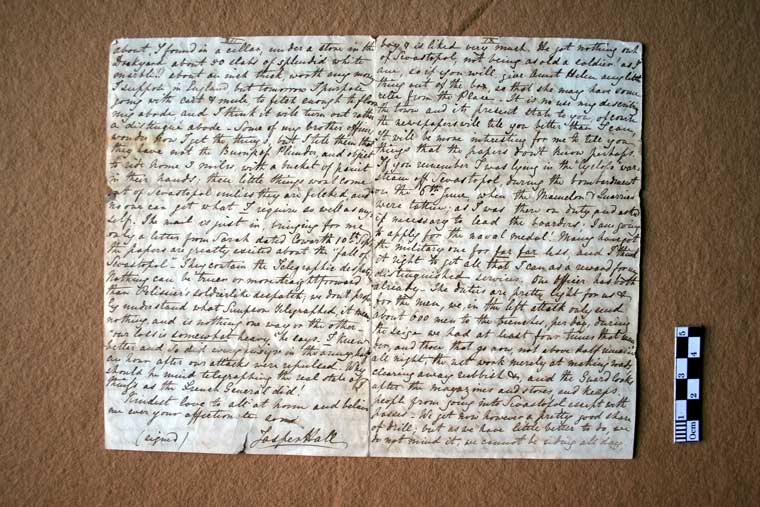 about, I found in a cellar, under a store in the
Dockyard about 30 slabs of splendid white
marble about an inch thick, worth any money
I suppose in England but tomorrow I purpose
going with cart & mule to fetch enough to floor
my abode, and I think it will turn out rather
a distingué abode - Some of my brother officers
wonder how I get the things, but I tell them that
they have not the Bump of Plunder, and object
to ride home 3 miles, with a bucket of paint
in their hands; these little things won't come
out of Sevastopol unless they are fetched and
no one can get what I require as well as my-
self. The mail is just in, bringing for me
only a letter from Sarah dated Coworth 10th Sept
the papers are greatly excited about the "fall of
Sevastopol" They contain the Telegraphic despatch
Nothing can be truer or more straightforward
than Pelissier's soldierlike despatch, we don't proper-
ly understand what Simpson telegraphed, it means
nothing and is nothing one way or the other -
"our loss is somewhat heavy," he says. I knew
better and so did every in the army half
an hour after our attacks were repulsed. Why
should he mind telegraphing the real state of
things as the French General did.
Kindest love to all at home and believe
me ever your affection te sone
(signed) Jasper Hall
IX
boy & is liked very much. He got nothing out
of Sevastopol, not being as old a soldier as I
am, so if you will give Aunt Helen any little
thing out of the box, so that she may have some
relic from the place. It is no use my describing
the town and its present state to you, of course
the newspapers will tell you better than I can,
It will be more interesting for me to tell you
things that the papers don't know perhaps.
If you remember I was lying in the
steam off Sevastopol, during the bombardment
on the 6th June, when the Mamelon & Quarries
were taken: as I was there on duty and asked
if necessary to lead the boarders. I am going
to apply for the naval medal! Many have got
the military one for far far less, and I think
it right to get all that I can as a reward for my
distinguished services. One officer has both
already. The duties are pretty light for us &
for the men, we in the left attack only send
about 600 men to the trenches, per day, during
the seige we had at least four times that num
ber, and those that go now, not above half remain
all night the rest work merely at making roads
clearing away rubbish &, and the Guard looks
after the magazines and stores and keeps
people from going into Sevastopol except with
passes - We get now however a pretty good share
of drill; but as we have little better to do we
do not mind it, we cannot be riding all day
0cm 1 2 3 4 5